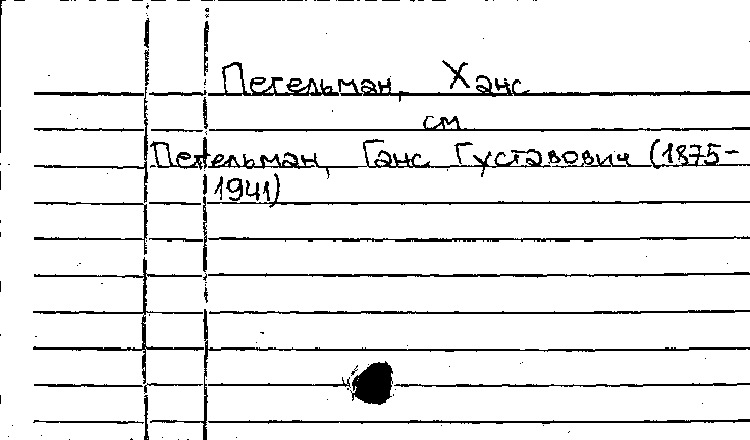 Пегельман, Ханс
см
Пегельман, Ганс Густавович (1875-
1941)